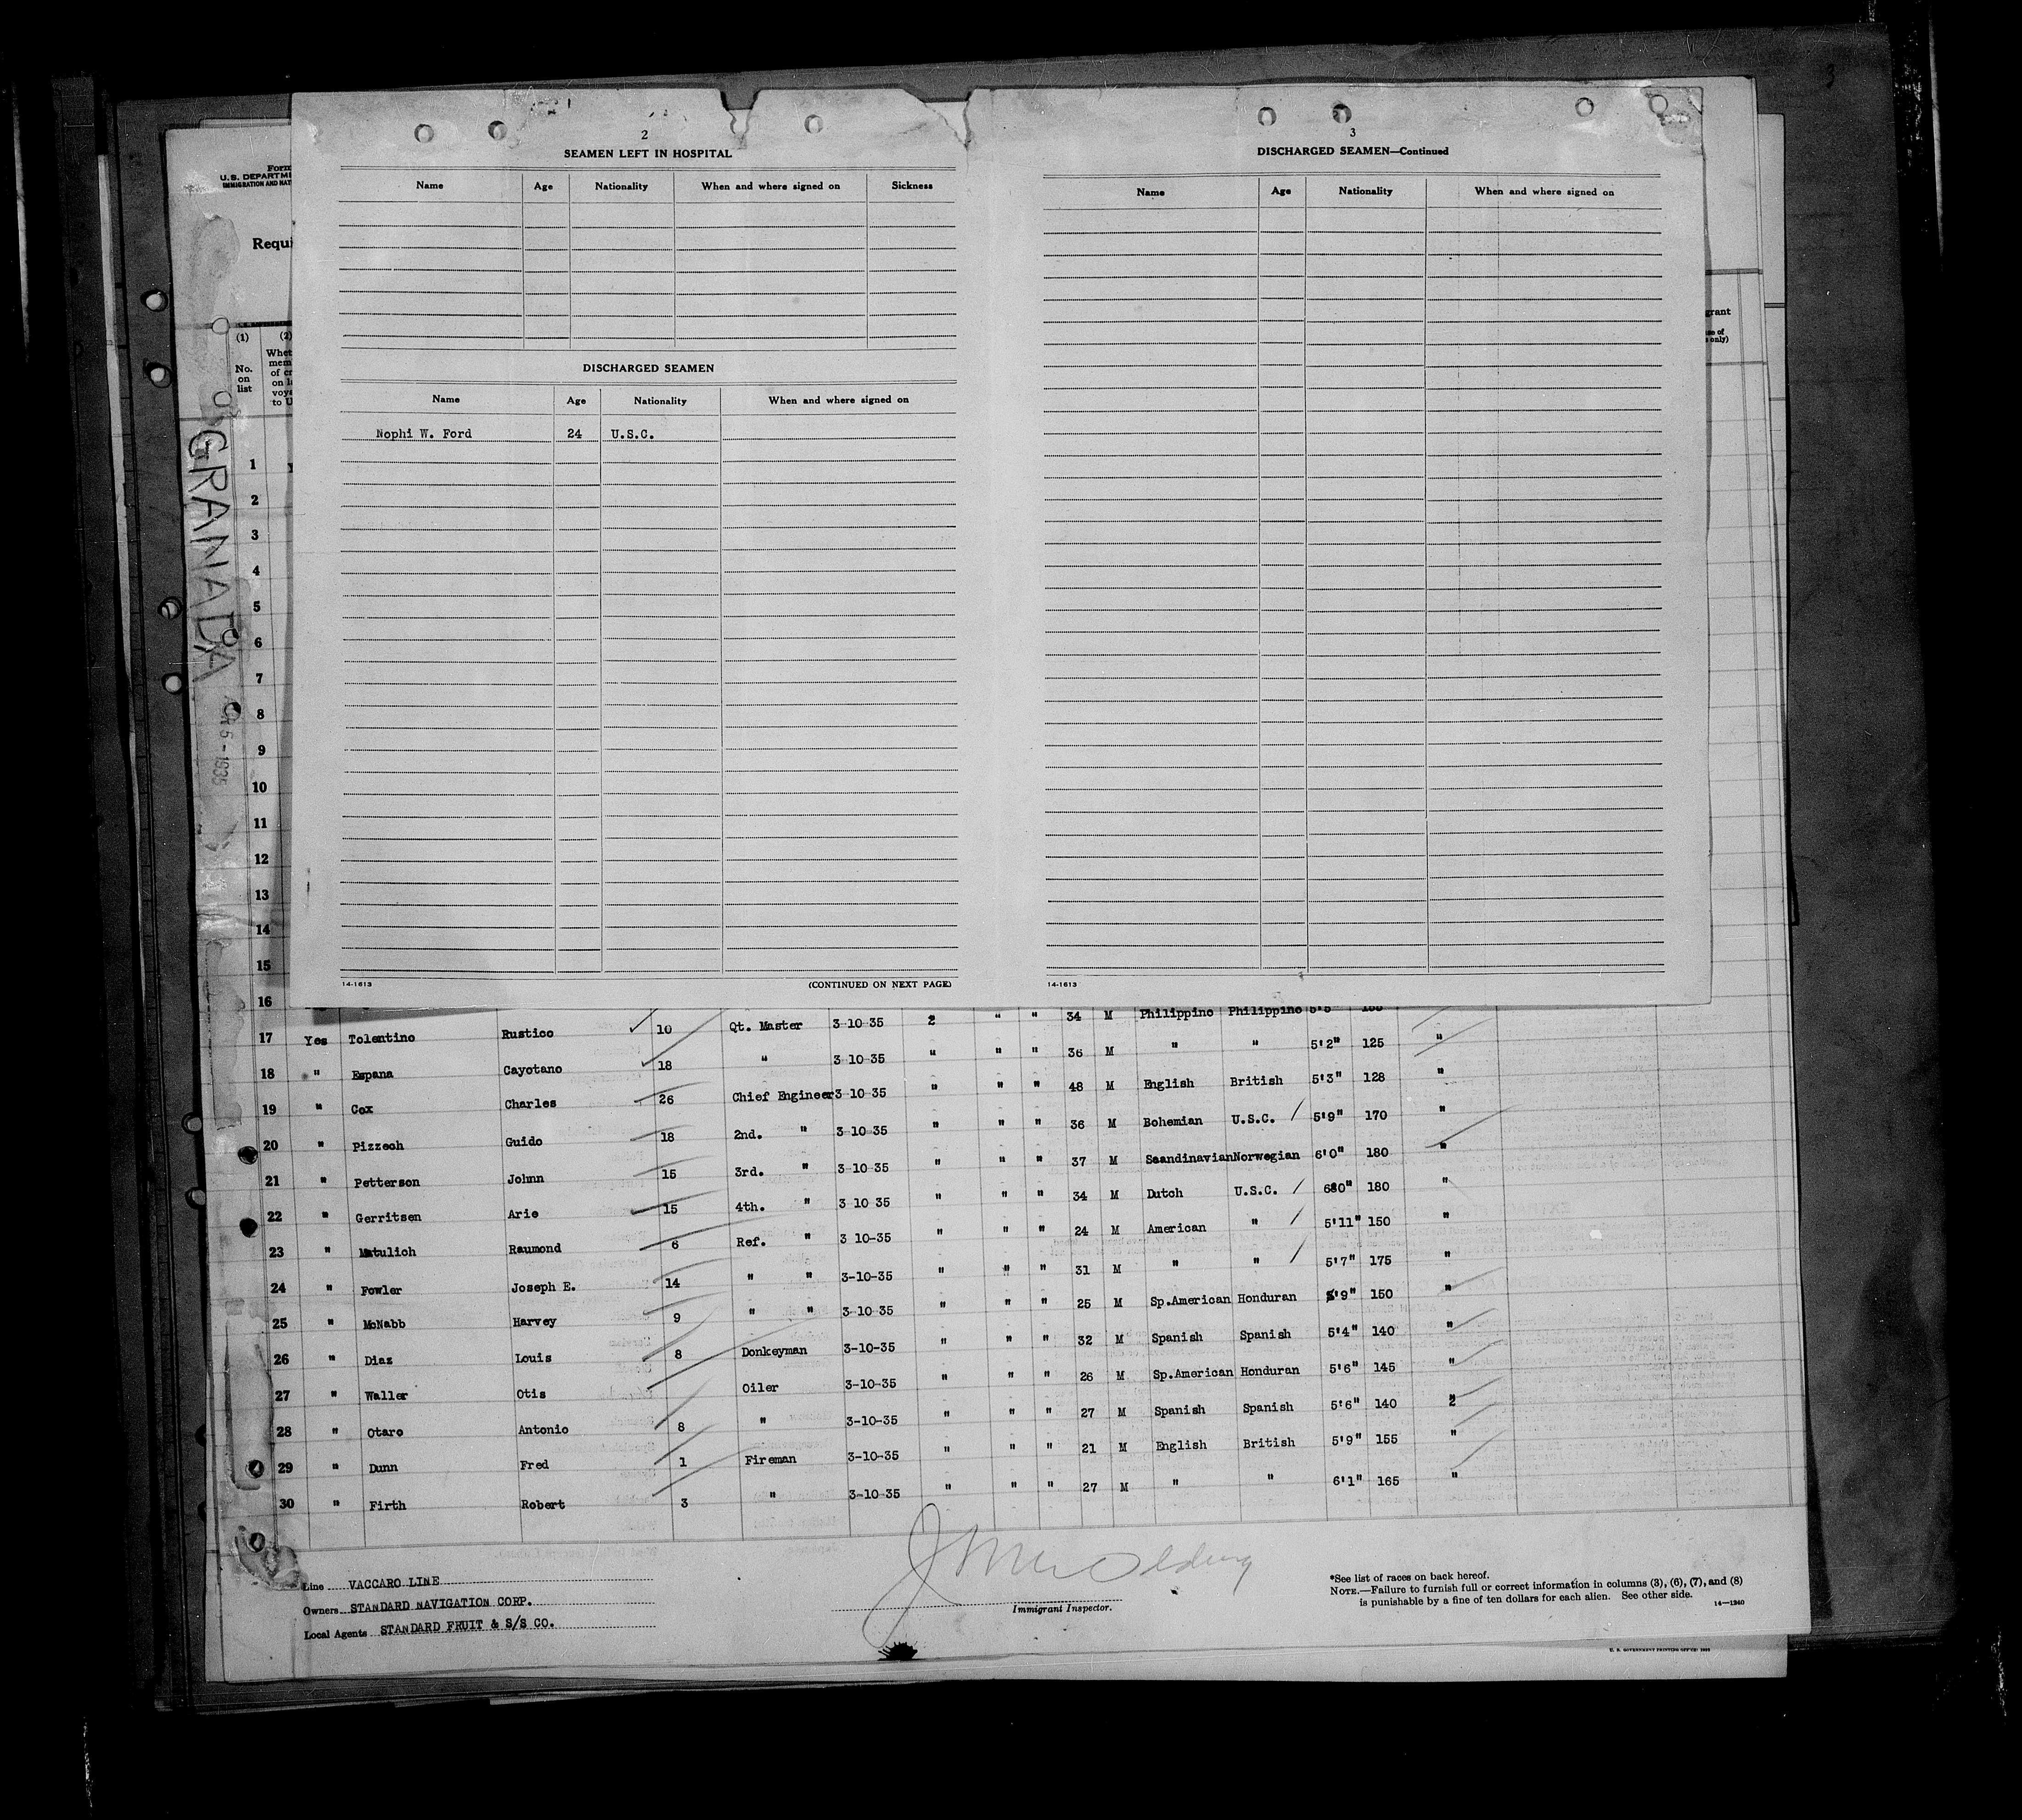 3
2
SEAMEN LEFT IN HOSPITAL
Name Age Nationality When and where signed on Sickness
DISCHARGED SEAMEN
Name Age Nationality When and where signed on
Nophi W. Ford 24 U.S.C.
14-1613 (CONTINUED ON NEXT PAGE)
3
DISCHARGED SEAMEN—Continued
Name Age Nationality When and where signed on
14-1613
Form
U.S. DEPARTM
IMMIGRATION AND NAT
Requi
(1) (2)
No. on list
Whet
mem
of cr
on l
voya
to U
grant
only)
GRANADA
5 - 1935
1
2
3
4
5
6
7
8
9
10
11
12
13
14
15
16
17 Yes Tolentino Rustico 10 Qt. Master 3-10-35 2 " " 34 M Philippino Philippino 5'5"
18 " Espana Cayotano 18 " 3-10-35 " " " 36 M " " 5'2" 125 "
19 " Cox Charles 26 Chief Engineer 3-10-35 " " " 48 M English British 5'3" 128 "
20 " Pizzech Guido 18 2nd. " 3-10-35 " " " 36 M Bohemian U.S.C. 5'9" 170 "
21 " Petterson Johnn 15 3rd. " 3-10-35 " " " 37 M Scandinavian Norwegian 6'0" 180 "
22 " Gerritsen Arie 15 4th. " 3-10-35 " " " 34 M Dutch U.S.C. 6'0" 180 "
23 " Matulich Raumond 6 Ref. " 3-10-35 " " " 24 M American " 5'11" 150 "
24 " Fowler Joseph E. 14 " " 3-10-35 " " " 31 M " " 5'7" 175 "
25 " McNabb Harvey 9 " " 3-10-35 " " " 25 M Sp.American Honduran 5'9" 150 "
26 " Diaz Louis 8 Donkeyman 3-10-35 " " " 32 M Spanish Spanish 5'4" 140 "
27 " Waller Otis Oiler 3-10-35 " " " 26 M Sp.American Honduran 5'6" 145 "
28 " Otaro Antonio 8 " 3-10-35 " " " 27 M Spanish Spanish 5'6" 140 2
29 " Dunn Fred 1 Fireman 3-10-35 " " " 21 M English British 5'9" 155 "
30 " Firth Robert 3 " 3-10-35 " " " 27 M " " 6'1" 165 "
Line VACCARO LINE
Owners STANDARD NAVIGATION CORP.
Local Agents STANDARD FRUIT & S/S CO.
Immigrant Inspector.
*See list of races on back hereof.
NOTE.—Failure to furnish full or correct information in columns (3), (6), (7), and (8)
is punishable by a fine of ten dollars for each alien. See other side.
14—1240
U. S. GOVERNMENT PRINTING OFFICE